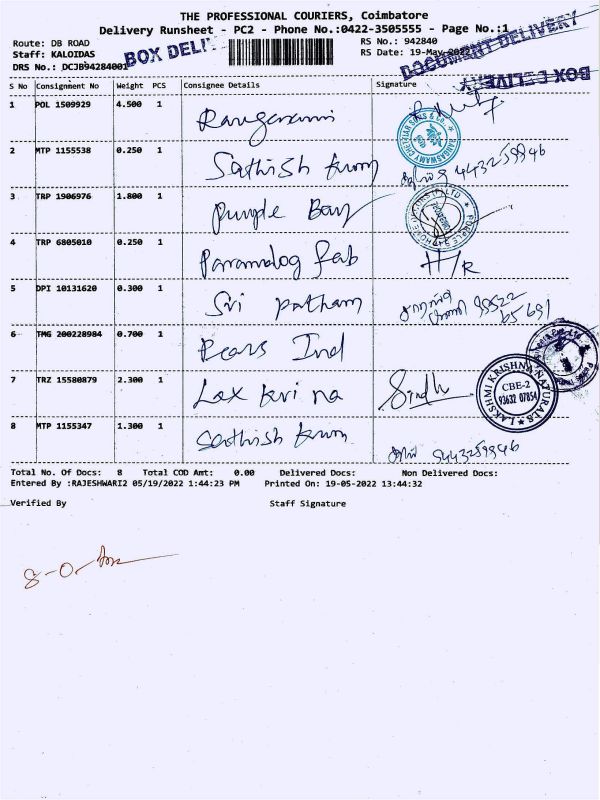 THE PROFESSIONAL COURIERS, Coimbatore
Delivery Runsheet - PC2 - Phone No.:0422-3505555 - Page No.:1
Route: DB ROAD
RS No.: 942840
Staff: KALOIDAS
BOX DELI
RS Date: 19-May-2022
DOCUMENT DELIVERY
DRS No.: DCJB94284001
BOX DELIVERY
S No Consignment No Weight PCS Consignee Details Signature
1 POL 1509929 4.500 1
RANGASWAMY CHETTIAR SONS & CO.
2 MTP 1155538 0.250 1 Sathish kum 9443259946
3 TRP 1906976 1.800 1 Purple Bay
4 TRP 6805010 0.250 1 Fab H/R
5 DPI 10131620 0.300 1 Sri Patham
6 TMG 200228984 0.700 1 Pears Ind
7 TRZ 15580879 2.300 1 Lax kri na Sindhu
LAKSHMI KRISHNA NATURALS
CBE-2
93632 07854
8 MTP 1155347 1.300 1 Sathish kum 9443259946
Total No. Of Docs: 8 Total COD Amt: 0.00 Delivered Docs: Non Delivered Docs:
Entered By :RAJESHWARI2 05/19/2022 1:44:23 PM Printed On: 19-05-2022 13:44:32
Verified By Staff Signature
8-0-